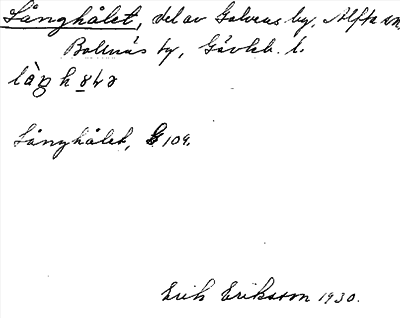 Långhålet, del av Galvens by, Alfta sn,
Bollnäs ty, Gävleb. l.
Långhålet, G 109.
Erik Eriksson 1930.